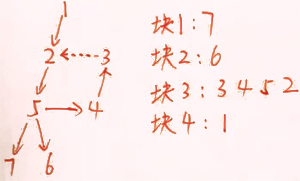 1
2 3
5 4
7 6
块1:7
块2:6
块3:3 4 5 2
块4:1